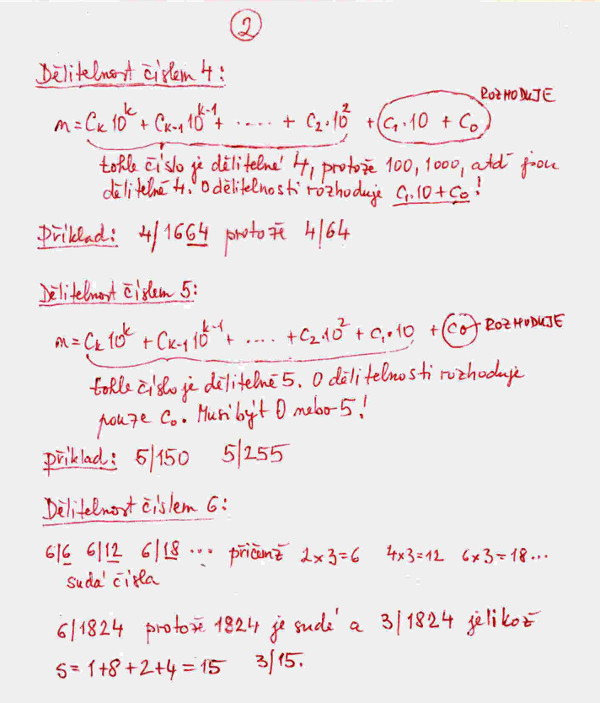 2
Dělitelnost číslem 4:
ROZHODUJE
m = Cₖ10ᵏ + Cₖ₋₁10ᵏ⁻¹ + ..... + C₂·10² + C₁·10 + C₀
tohle číslo je dělitelné 4, protože 100, 1000, atd jsou
dělitelné 4. O dělitelnosti rozhoduje C₁·10+C₀!
Příklad: 4/1664 protože 4/64
Dělitelnost číslem 5:
m = Cₖ10ᵏ + Cₖ₋₁10ᵏ⁻¹ + .... + C₂·10² + C₁·10 + C₀ ROZHODUJE
tohle číslo je dělitelné 5. O dělitelnosti rozhoduje
pouze C₀. Musí být 0 nebo 5!
příklad: 5/150 5/255
Dělitelnost číslem 6:
6/6 6/12 6/18 ... přičemž 2×3=6 4×3=12 6×3=18...
sudá čísla
6/1824 protože 1824 je sudé a 3/1824 jelikož
S=1+8+2+4=15 3/15.